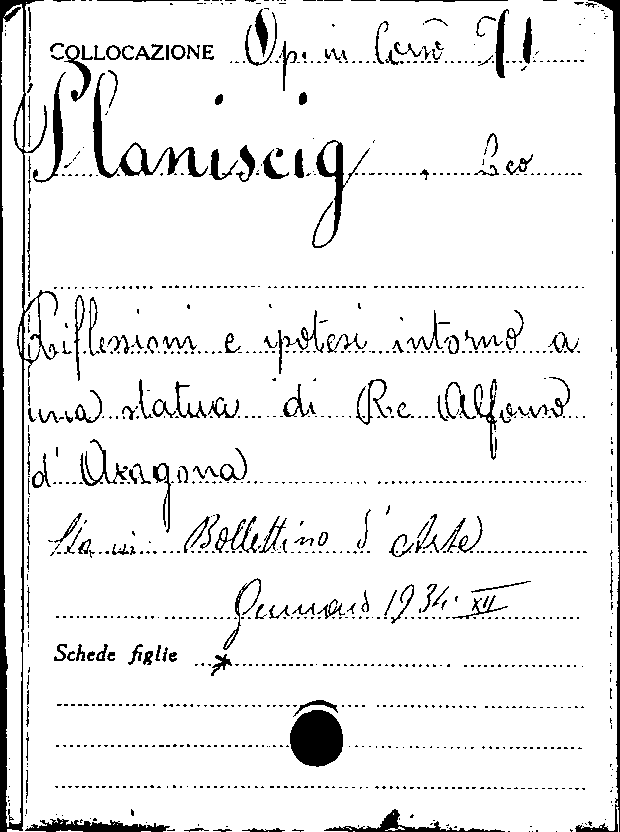 COLLOCAZIONE Op. in Corso 71
Planiscig, Leo
Riflessioni e ipotesi intorno a
una statua di Re Alfonso
d'Aragona
Sta in: Bollettino d'Arte
Gennaio 1934. XII
Schede figlie *